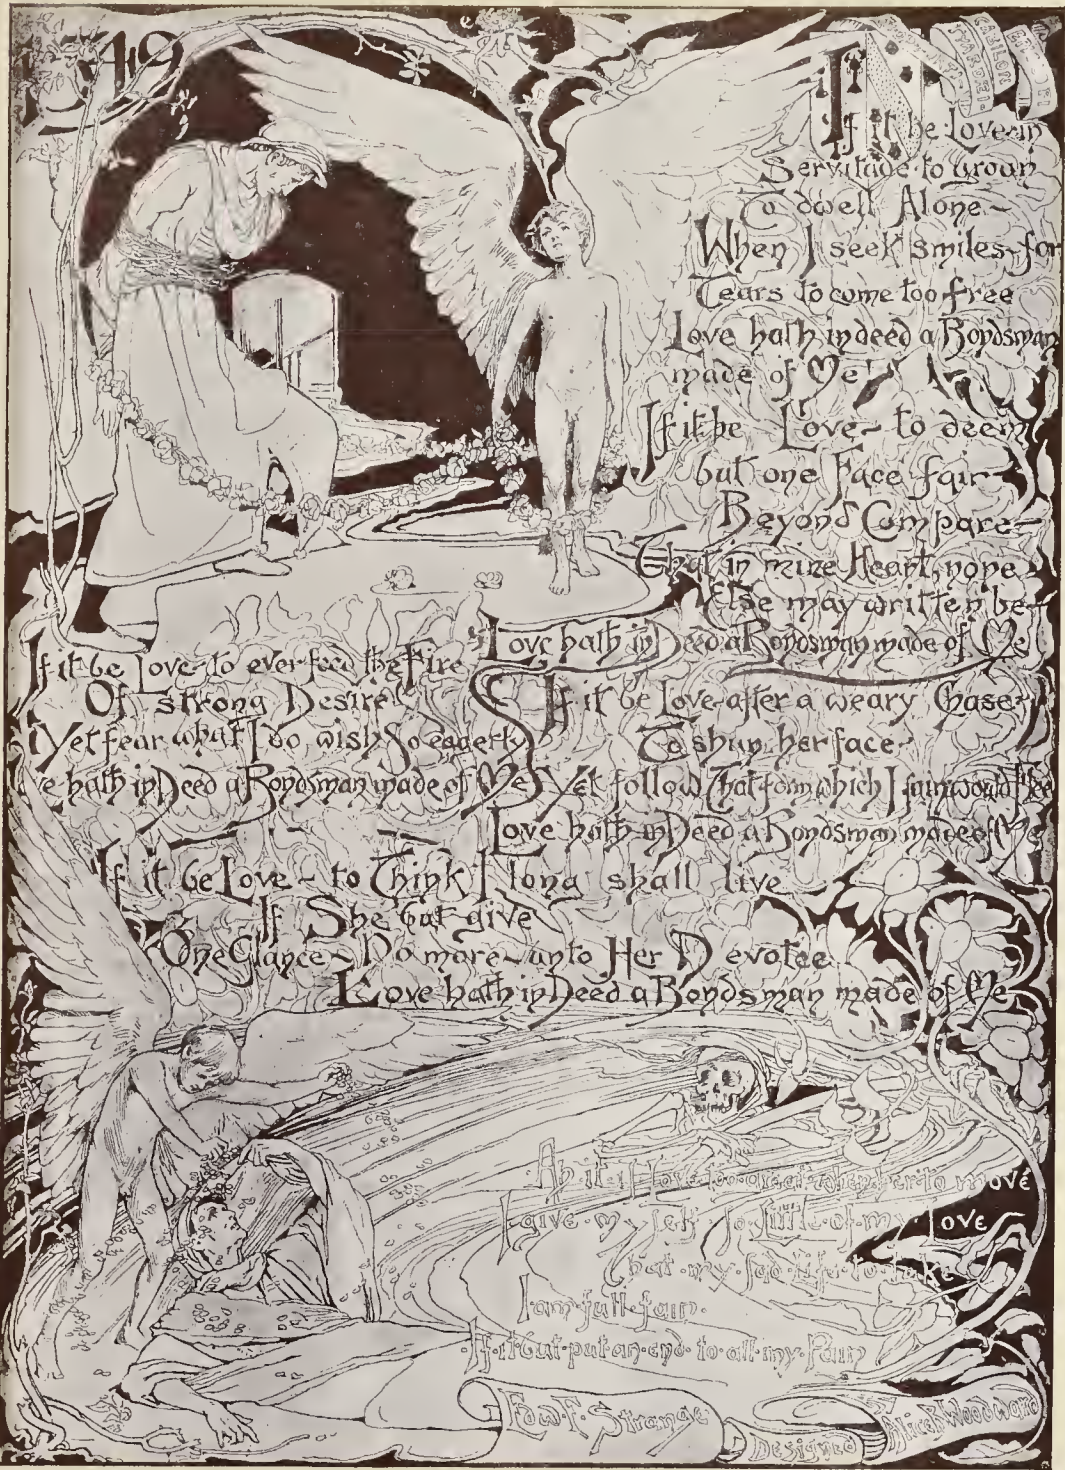 1549
If it be Love in
Servitude to groan
To dwell Alone
When I seek smiles for
Tears to come too free
Love hath indeed a Bondsman
made of Me!
If it be Love to deem
but one Face fair
Beyond Compare
That in mine Heart none
Else may written be
Love hath inDeed a Bondsman made of Me
If it be Love to ever feed the Fire
Of strong Desire
Yet fear what I do wish So eagerly
Love hath inDeed a Bondsman made of Me
If it be Love after a weary Chase
To shun her face
Yet follow That form which I fain would flee
Love hath inDeed a Bondsman made of Me
If it be Love to Think I long shall live
If She but give
One Glance No more unto Her Devotee
Love hath inDeed a Bondsman made of Me
Ah if I love too great to move
I give my So Little of my Love
that my life to take
I am full fain.
If it but put an end to all my Pain
Edw. F. Strange
Designed
Alice B Woodward